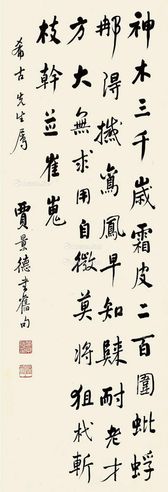 神木三千歲霜皮二百圍蚍蜉
那得撼鸞鳳早知歸耐老才
方大無求用自微莫將狙杙斬
枝幹並崔嵬
希古先生屬
賈景德書舊句